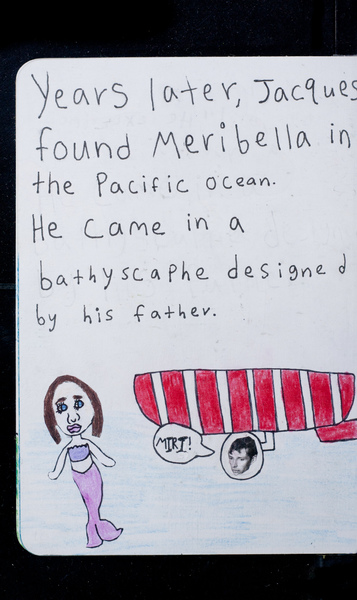 Years later, Jacques
found Meribella in
the Pacific ocean.
He came in a
bathyscaphe designed
by his father.
MIRI!